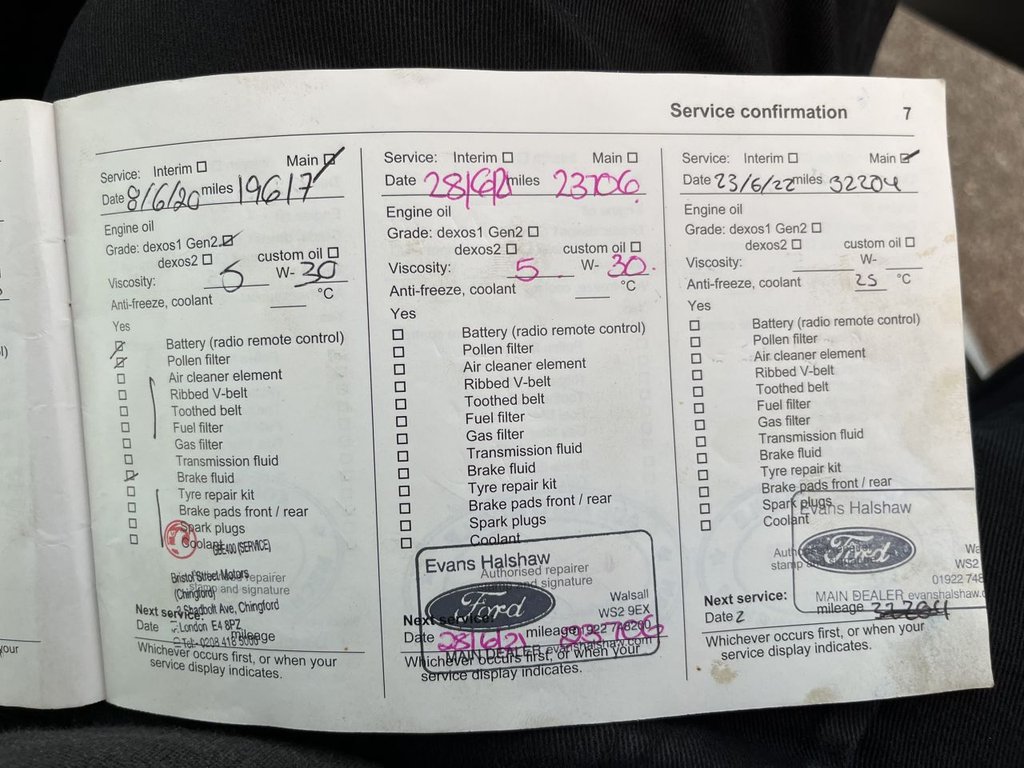 Service confirmation 7
Service: Interim Main
Date 8/6/20 miles 19617
Engine oil
Grade: dexos1 Gen2
dexos2 custom oil
Viscosity: 5 W- 30
Anti-freeze, coolant °C
Yes
Battery (radio remote control)
Pollen filter
Air cleaner element
Ribbed V-belt
Toothed belt
Fuel filter
Gas filter
Transmission fluid
Brake fluid
Tyre repair kit
Brake pads front / rear
Spark plugs
Coolant
(SERVICE)
Bristol Street Motors
repairer
(Chingford)
stamp and signature
Shadbolt Ave, Chingford
Next service:
London E4 8PZ
Date mileage
Whichever occurs first, or when your
service display indicates.
Service: Interim Main
Date 28/6/21 miles 23706
Engine oil
Grade: dexos1 Gen2
dexos2 custom oil
Viscosity: 5 W- 30.
Anti-freeze, coolant °C
Yes
Battery (radio remote control)
Pollen filter
Air cleaner element
Ribbed V-belt
Toothed belt
Fuel filter
Gas filter
Transmission fluid
Brake fluid
Tyre repair kit
Brake pads front / rear
Spark plugs
Coolant
Evans Halshaw
Authorised repairer
stamp and signature
Ford
Walsall
WS2 9EX
Next service:
Date 28/6/21 mileage 23706
MAIN DEALER evanshalshaw.com
Whichever occurs first, or when your
service display indicates.
Service: Interim Main
Date 23/6/22 miles 32204
Engine oil
Grade: dexos1 Gen2
dexos2 custom oil
Viscosity: W-
Anti-freeze, coolant 25 °C
Yes
Battery (radio remote control)
Pollen filter
Air cleaner element
Ribbed V-belt
Toothed belt
Fuel filter
Gas filter
Transmission fluid
Brake fluid
Tyre repair kit
Brake pads front / rear
Spark plugs
Coolant
Evans Halshaw
Ford
WS2
01922 748
MAIN DEALER evanshalshaw.c
Next service:
Date 2 mileage 32204
Whichever occurs first, or when your
service display indicates.